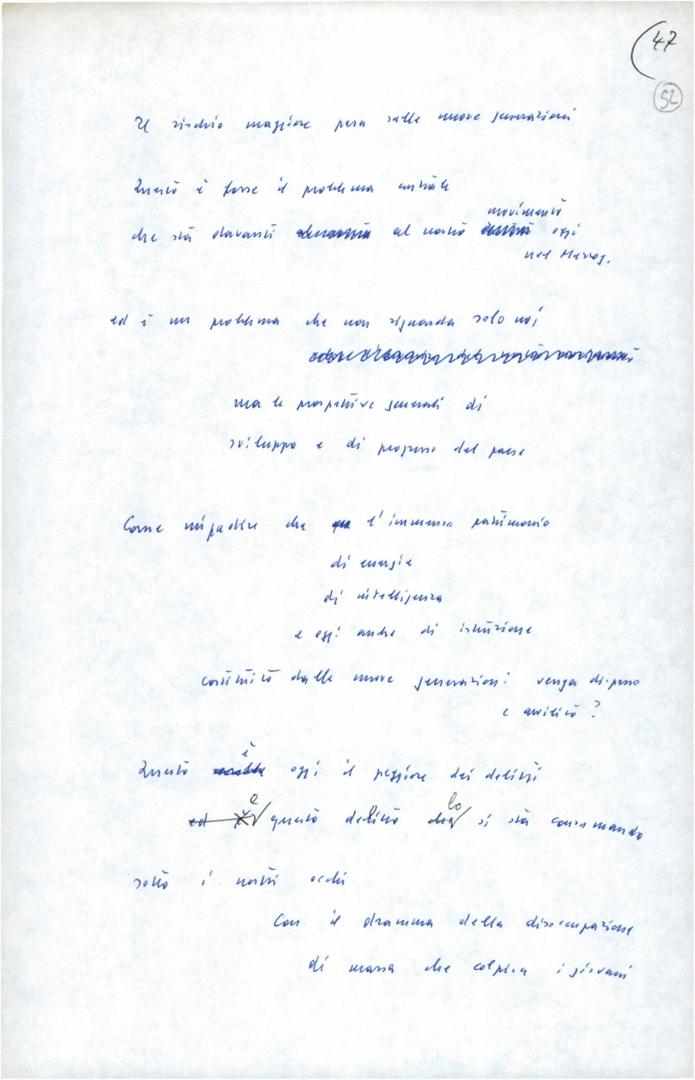 47
52
Il rischio maggiore pesa sulle nuove generazioni
Questo è forse il problema centrale
movimento
che stà davanti al nostro oggi
nel Mezzog.
ed è un problema che non riguarda solo noi
ma le prospettive generali di
sviluppo e di progresso del paese
Come impedire che l'immenso patrimonio
di energie
di intelligenza
e oggi anche di istruzione
costituito dalle nuove generazioni venga disperso
e avvilito?
è
Questo oggi il peggiore dei delitti
e lo
ed questo delitto che si stà consumando
sotto i nostri occhi
Con il dramma della disoccupazione
di massa che colpisce i giovani